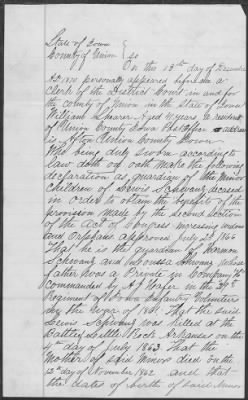 State of Iowa
County of Union } SS
On this 13th day of December
AD 1870 personally appeared before me a
Clerk of the District Court in and for
the county of Union in the State of Iowa
William Shearer aged 41 years a resident
of Union County Iowa Post Office address
is Afton Union County Iowa
Who being duly sworn according to
law doth on oath make the following
declaration as guardian of the minor
children of Lewis Schwanz deceased
in order to obtain the benefit of the
provision made by the second section
of the act of Congress increasing widows
and Orphans approved July 25 1866
That he is the guardian of Herman
Schwanz and Louisa Schwanz whose
father was a Private in Company
Commanded by A J in the 29th
Regiment of Iowa Infantry Volunteers
in the War of 1861 That the said
Lewis Schwanz was killed at the
Battle Little Rock Arkansas on the
4th day of July 1863 That the
Mother of said Minors died on the
12th day of November 1862 and that
the dates of birth of said Minors